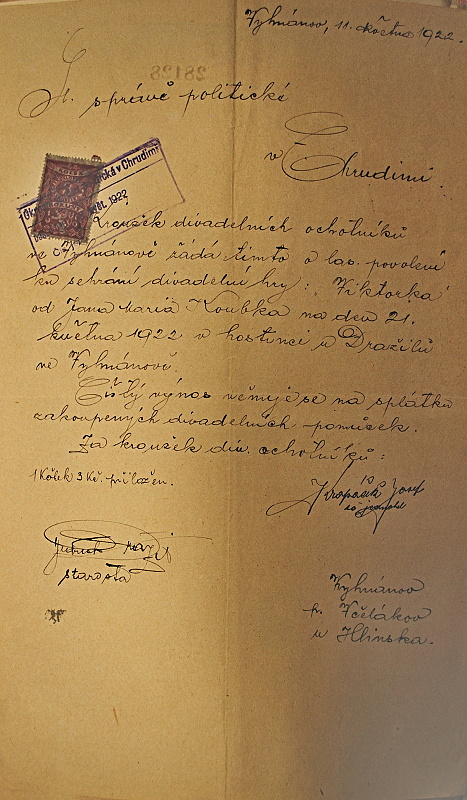 Vyhnánov, 11. května 1922.
28128
Sl. správě politické
v Chrudimi.
cká v Chrudimi
květ. 1922
Kroužek divadelních ochotníků
ve Vyhnánově žádá tímto o las. povolení
ku sehrání divadelní hry: „Viktorka"
od Jana Maria Koubka na den 21.
května 1922 v hostinci u Dražilů
ve Vyhnánově.
Čistý výnos věnuje se na splátku
zakoupených divadelních pomůcek.
Za kroužek div. ochotníků:
1 Kolek 3 Kč. přiložen.
Kropáček Josef
starosta
Vyhnánov
p. Včelákov
u Hlinska.